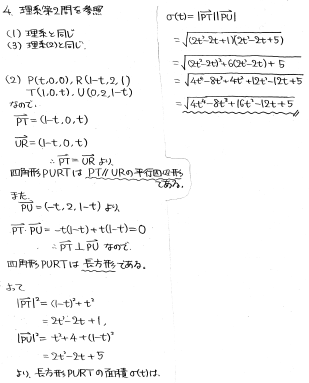 4. 理系第2問を参照
(1) 理系と同じ
(3) 理系(2)と同じ.
(2) P(t,0,0), R(1-t,2,1)
T(1,0,t), U(0,2,1-t)
なので、
→PT = (1-t,0,t)
→UR = (1-t,0,t)
∴ →PT = →UR より
四角形PURTは PT∥URの平行四辺形
である。
また
→PU = (-t,2,1-t) より
→PT・→PU = -t(1-t)+t(1-t)=0
∴ →PT ⊥ →PU なので
四角形PURTは 長方形である。
よって
|→PT|² = (1-t)²+t²
= 2t²-2t+1,
|→PU|² = t²+4+(1-t)²
= 2t²-2t+5
より、長方形PURTの面積σ(t)は、
σ(t)=|→PT||→PU|
=√(2t²-2t+1)(2t²-2t+5)
=√(2t²-2t)²+6(2t²-2t)+5
=√4t⁴-8t³+4t²+12t²-12t+5
=√4t⁴-8t³+16t²-12t+5